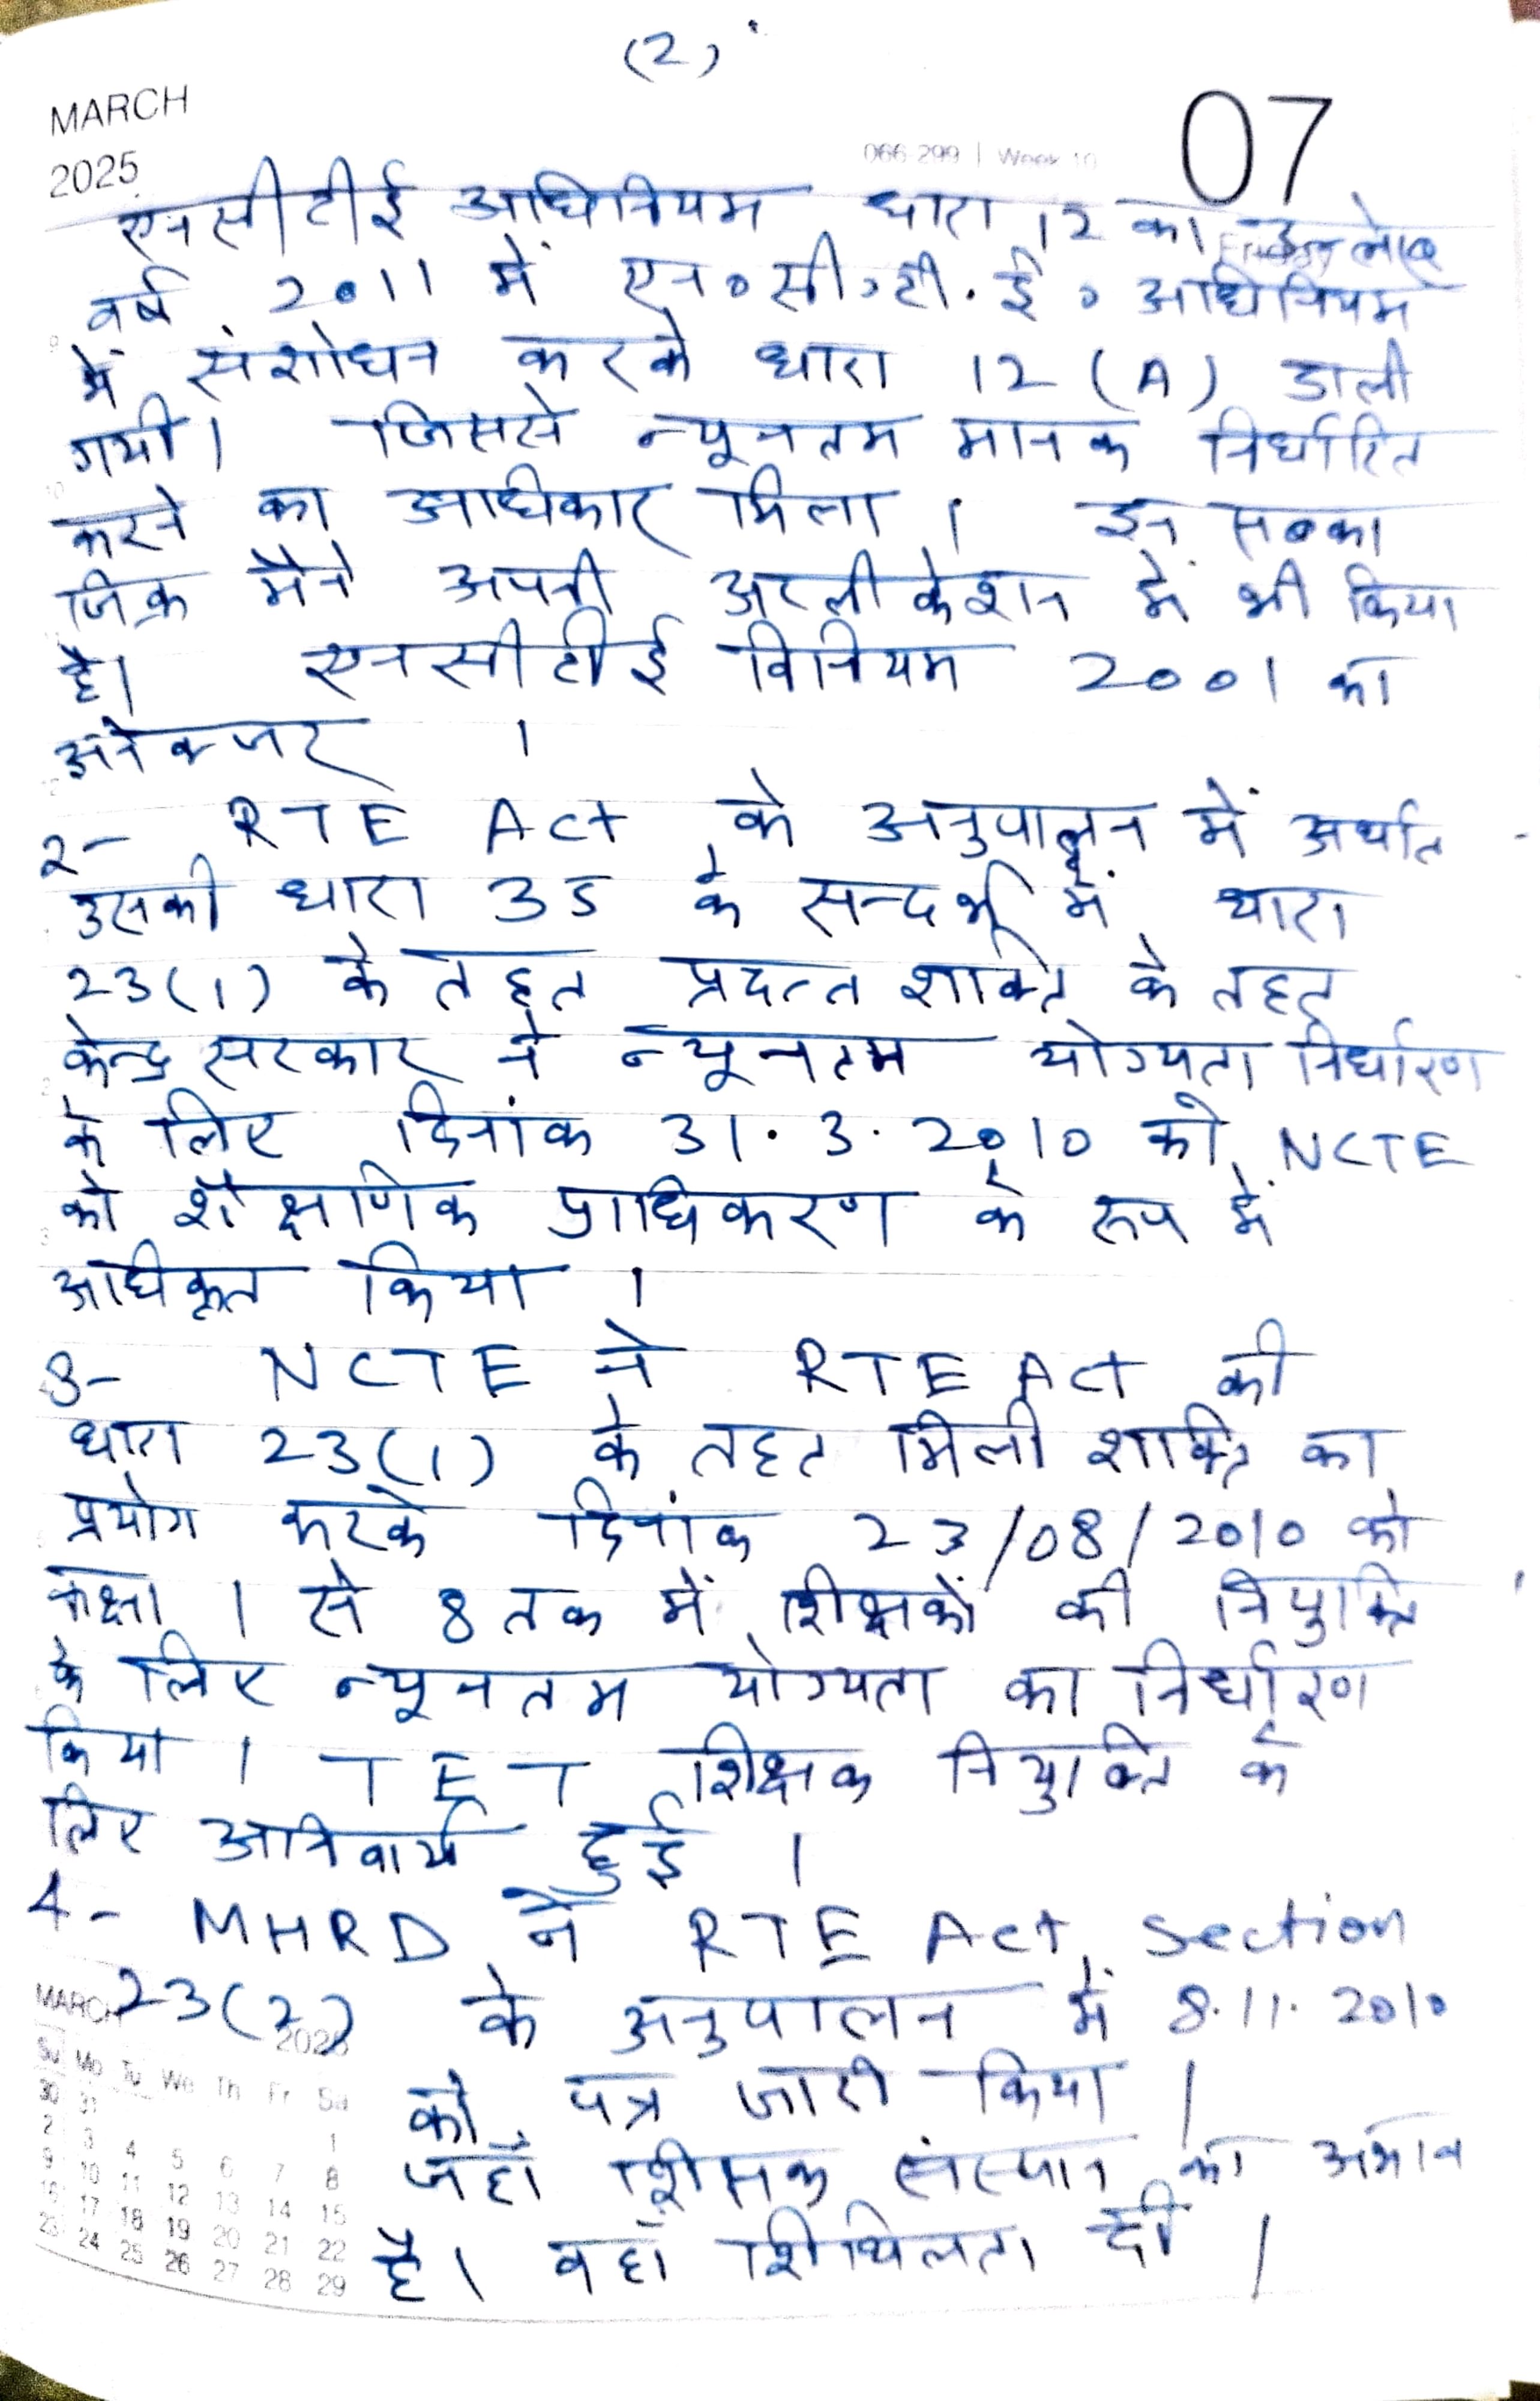 (2)
MARCH
2025
066-299 | Week 10
07
एनसीटीई अधिनियम धारा 12 का उल्लेख
वर्ष 2011 में एन०सी०टी.ई० अधिनियम
में संशोधन करके धारा 12 (A) डाली
गयी। जिससे न्यूनतम मानक निर्धारित
करने का अधिकार मिला । इन सबका
जिक्र मैने अपनी अप्लीकेशन में भी किया
है। एनसीटीई विनियम 2001 का
अनेक्जर ।
2- RTE Act के अनुपालन में अर्थात
उसकी धारा 35 के सन्दर्भ में धारा
23(1) के तहत प्रदत्त शक्ति के तहत
केन्द्र सरकार ने न्यूनतम योग्यता निर्धारण
के लिए दिनांक 31.3.2010 को NCTE
को शैक्षणिक प्राधिकरण के रूप में
अधिकृत किया ।
3- NCTE ने RTE Act की
धारा 23(1) के तहत मिली शक्ति का
प्रयोग करके दिनांक 23/08/2010 को
कक्षा 1 से 8 तक में शिक्षकों की नियुक्ति
के लिए न्यूनतम योग्यता का निर्धारण
किया । TET शिक्षक नियुक्ति के
लिए अनिवार्य हुई ।
4- MHRD ने RTE Act, Section
23(2) के अनुपालन में 8.11.2010
को पत्र जारी किया ।
जहाँ शिक्षक संस्थान का अभाव
है। वहाँ शिथिलता दी ।
MARCH 2025
Su Mo Tu We Th Fr Sa
30 31 1
2 3 4 5 6 7 8
9 10 11 12 13 14 15
16 17 18 19 20 21 22
23 24 25 26 27 28 29